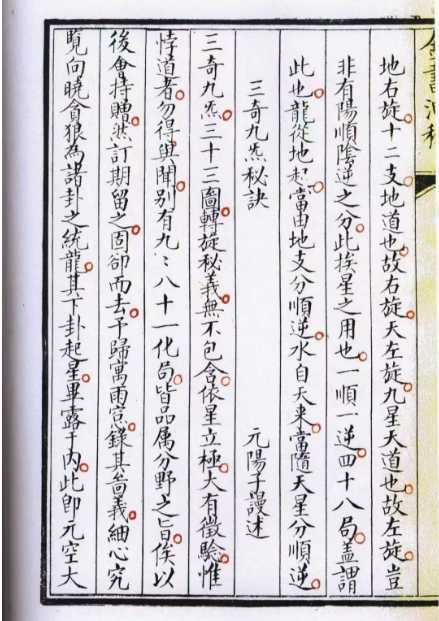 地右旋十二支地道也故右旋天左旋九星天道也故左旋豈
非有陽順陰逆之分此挨星之用也一順一逆四十八局蓋謂
此也龍從地起當由地支分順逆水自天来當隨天星分順逆
三奇九炁秘訣
元陽子謾述
三奇九炁三十三圖轉旋秘義無不包含依星立極大有徵驗惟
悖道者勿得與聞别有九〻八十一化局皆品属分野之旨俟以
後會持贈然訂期留之固卻而去予歸寓雨窓錄其啚義細心究
覧向曉貪狼為諸卦之統龍其下卦起星畢露于内此即元空大